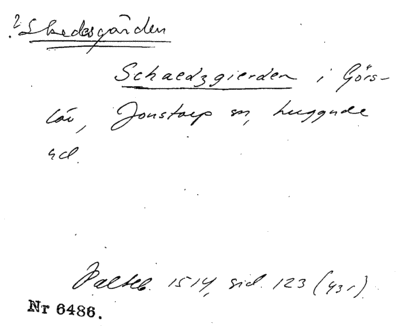 ? Skedesgården
Schaedzgierden i Görs-
löv, Jonstorp sn, Luggude
hd.
Palteb. 1514, sid. 123 (43r).
Nr 6486.